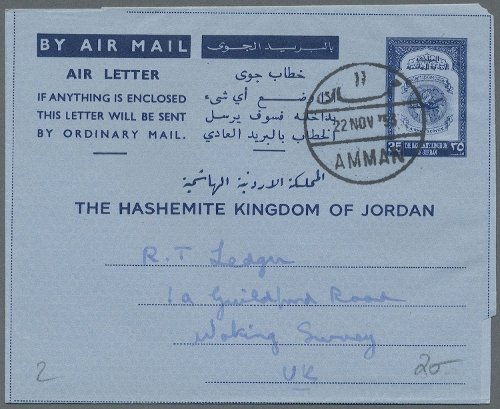 BY AIR MAIL
بالبريد الجوى
AIR LETTER
خطاب جوى
IF ANYTHING IS ENCLOSED
THIS LETTER WILL BE SENT
BY ORDINARY MAIL.
أي شيء
بداخله فسوف يرسل
الخطاب بالبريد العادي
22 NOV
AMMAN
THE HASHEMITE KINGDOM
OF JORDAN
٢٥
المملكة الاردنية الهاشمية
THE HASHEMITE KINGDOM OF JORDAN
R. T Ledger
1a Guildford Road
Woking Surrey
UK
2
20